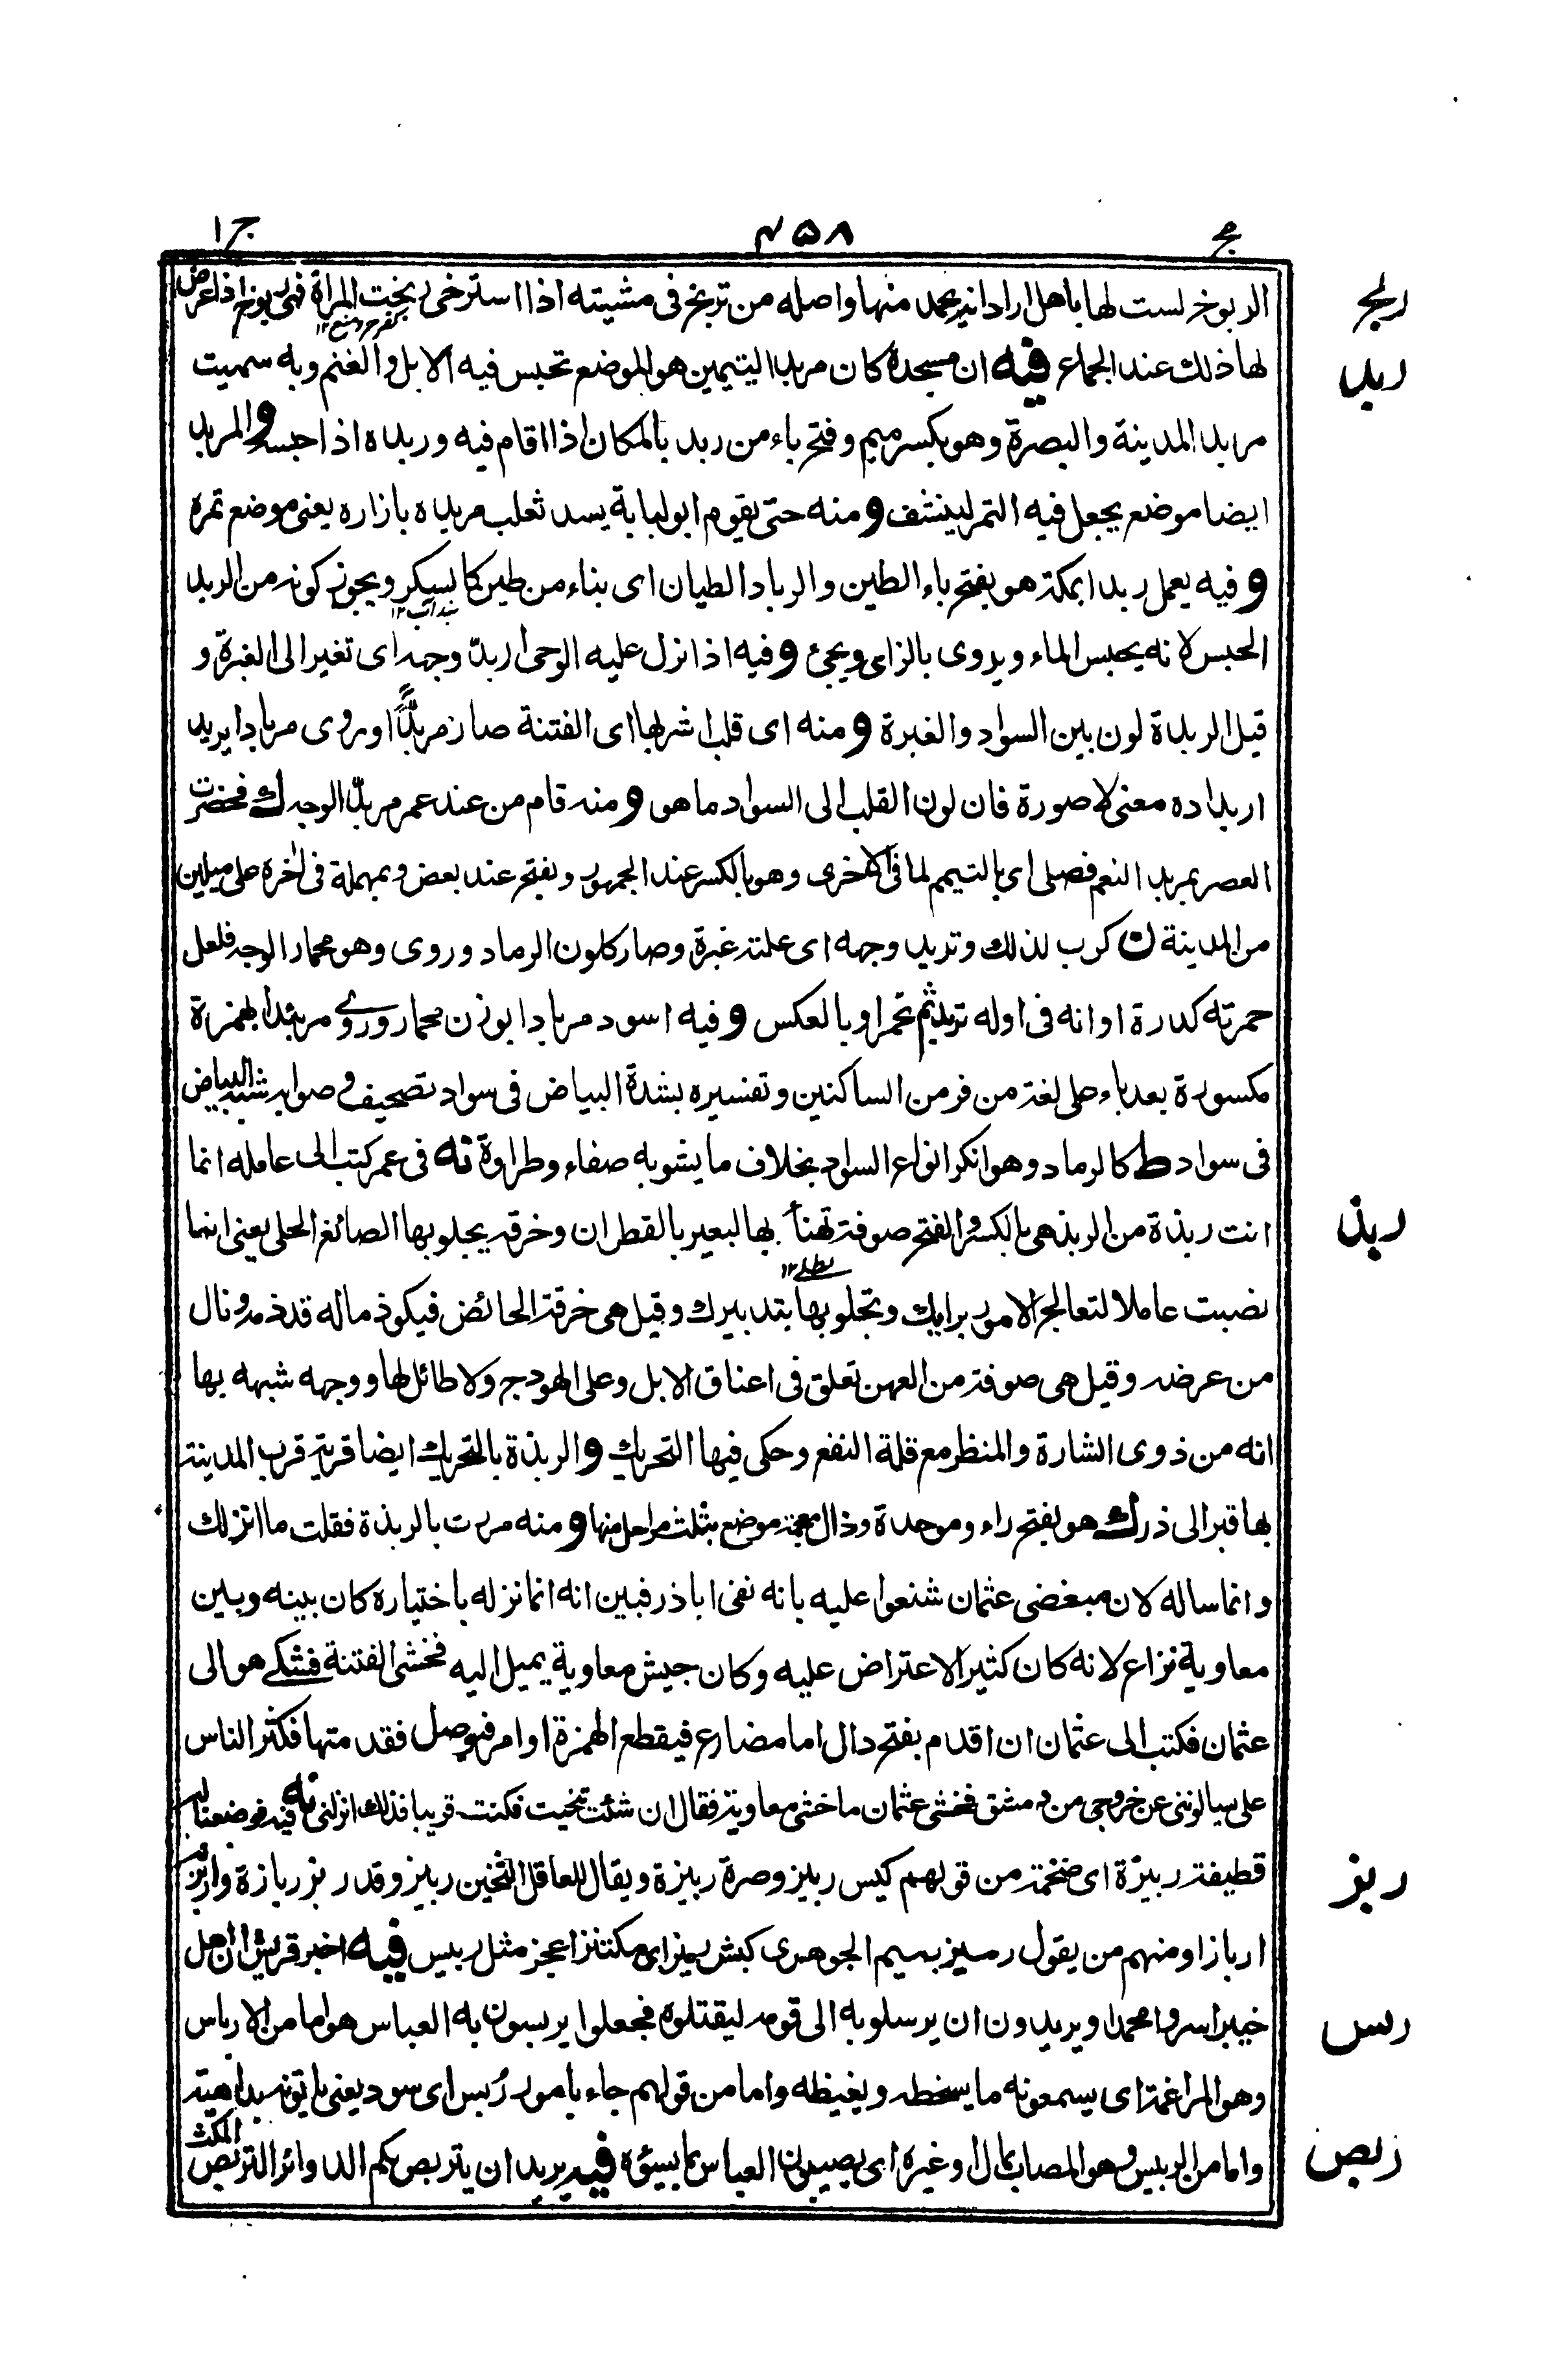 مج ۴۵۸ ج ا
ربخ
الربوخ لست لها باهل اراد انه يحمد منها واصله من تربخ فى مشيته اذا استرخى ربخت المراة فهى ربوخ اذا عرض
ربد
لها ذلك عند الجماع فيه ان مسجده كان مربدا ليتيمين هو الموضع تحبس فيه الابل والغنم وبه سميت
مربد المدينة والبصرة وهو بكسر ميم وفتح باء من ربد بالمكان اذا اقام فيه وربده اذا حبسه و المربد
ايضا موضع يجعل فيه التمر لينشف و منه حتى يقوم ابو لبابة يسد ثعلب مربده بازاره يعنى موضع تمره
و فيه يعمل ربدا بمكة هو بفتح باء الطين والرباد الطيان اى بناء من طين كالسكر ويجوز كونه من الربد
الحبس لانه يحبس الماء ويروى بالزاى ويجئ و فيه اذا نزل عليه الوحى اربدّ وجهه اى تغير الى الغبرة و
قيل الربدة لون بين السواد والغبرة و منه اى قلب اشربها اى الفتنة صار مربدًّا وروى مربادا يريد
اربداده معنى لا صورة فان لون القلب الى السواد ما هو و منه قام من عند عمر مربدّ الوجه ك فحضرت
العصر بمربد النعم فصلى اى بالتيمم لما فى الاخرى وهو بالكسر عند الجمهور وبفتح عند بعض وبمهملة فى اخره على ميلين
من المدينة ن كرب لذلك وتربد وجهه اى علته غبرة وصار كلون الرماد وروى وهو محمار الوجه فلعل
حمرته كدرة او انه فى اوله تربد ثم تحمر او بالعكس و فيه اسود مربادا بوزن محمار وروى مربئدا بهمزة
مكسورة بعد باء على لغة من فر من الساكنين وتفسيره بشدة البياض فى سواد تصحيف وصوابه شبه البياض
فى سواد ط كالرماد وهو انكر انواع السواد بخلاف ما يشوبه صفاء وطراوة نه فى عمر كتب الى عامله انما
ربذ
انت ربذة من الربذ هى بالكسر والفتح صوفة تهنأ بها البعير بالقطران وخرقة يجلو بها الصائغ الحلى يعنى انما
نصبت عاملا لتعالج الامور برايك وتجلو بها بتدبيرك وقيل هى خرقة الحائض فيكون ذماله قد ذمه ونال
من عرضه وقيل هى صوفة من العهن تعلق فى اعناق الابل وعلى الهودج ولا طائل لها ووجهه شبهه بها
انه من ذوى الشارة والمنظر مع قلة النفع وحكى فيها التحريك و الربذة بالتحريك ايضا قرية قرب المدينة
بها قبر ابى ذر ك هو بفتح راء وموحدة وذال معجمة موضع بثلث مراحل منها و منه مررت بالربذة فقلت ما انزلك
وانما ساله لان مبغضى عثمان شنعوا عليه بانه نفى ابا ذر فبين انه انما نزله باختياره كان بينه وبين
معاوية نزاع لانه كان كثير الاعتراض عليه وكان جيش معاوية يميل اليه فخشى الفتنة فشكے هو الى
عثمان فكتب الى عثمان ان اقدم بفتح دال اما مضارع فيقطع الهمزة او امر فيوصل فقدمتها فكثر الناس
على يسالوننى عن خروجى من دمشق فخشى عثمان ما خشى معاوية فقال ان شئت تنحيت فكنت قريبا فذلك انزلنى نه فيه فوضعنا له
ربز
قطيفة ربيزة اى ضخمة من قولهم كيس ربيز وصرة ربيزة ويقال للعاقل الثخين ربيز وقد ربز ربازة واربزته
اربازا ومنهم من يقول رميز بميم الجوهرى كبش ربيز اى مكتنز اعجز مثل ربيس فيه اخبر قريش ان اهل
ربس
خيبر اسروا محمدا ويريدون ان يرسلو به الى قومه ليقتلوه فجعلوا يربسون به العباس هو اما من الارباس
وهو المراغمة اى يسمعونه ما يسخطه ويغيظه واما من قولهم جاء بامور رُبس اى سود يعنى ياتونه بداهية
ربص
واما من الربيس وهو المصاب بمال او غيره اى يصيبون العباس بما يسؤه فيه يريد ان يتربص بكم الدوائر التربص المكث